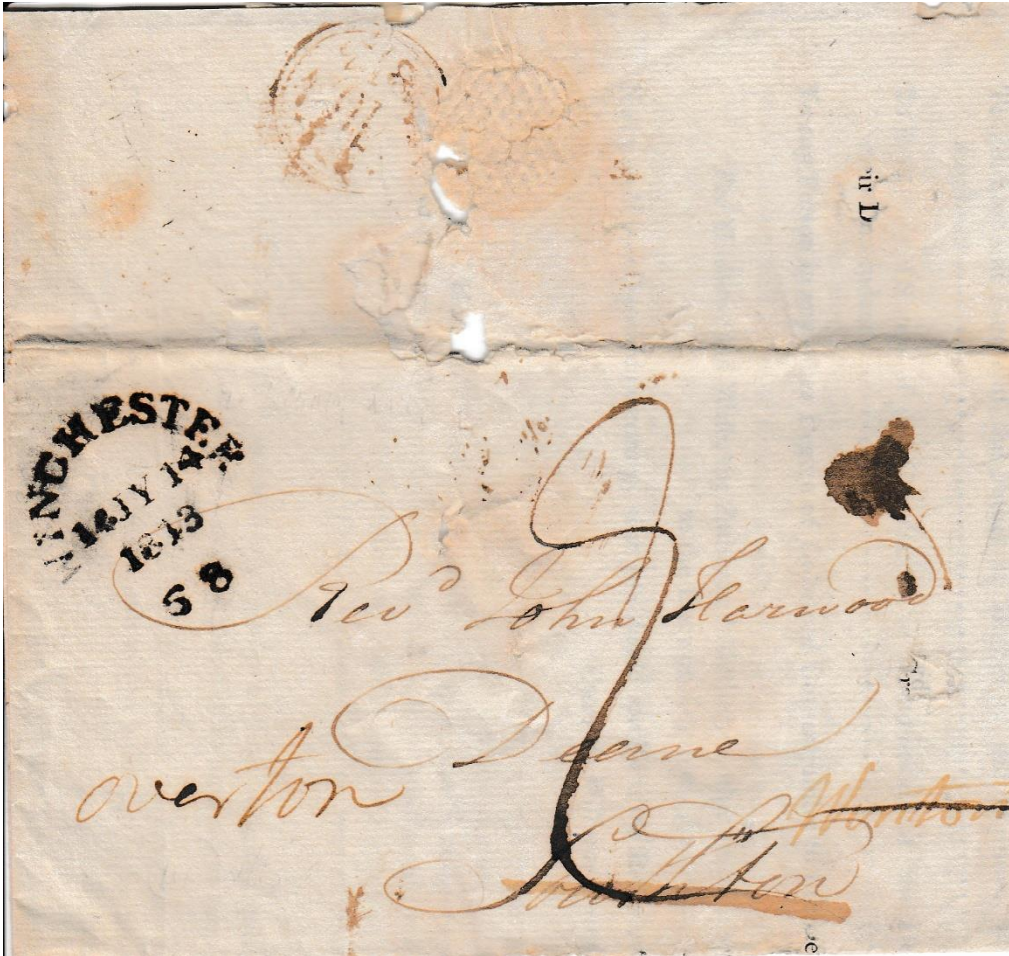 ir D
WINCHESTER
14 JY 14
1813
58
Revd John Harwood
Deane
overton
Winton
Southton